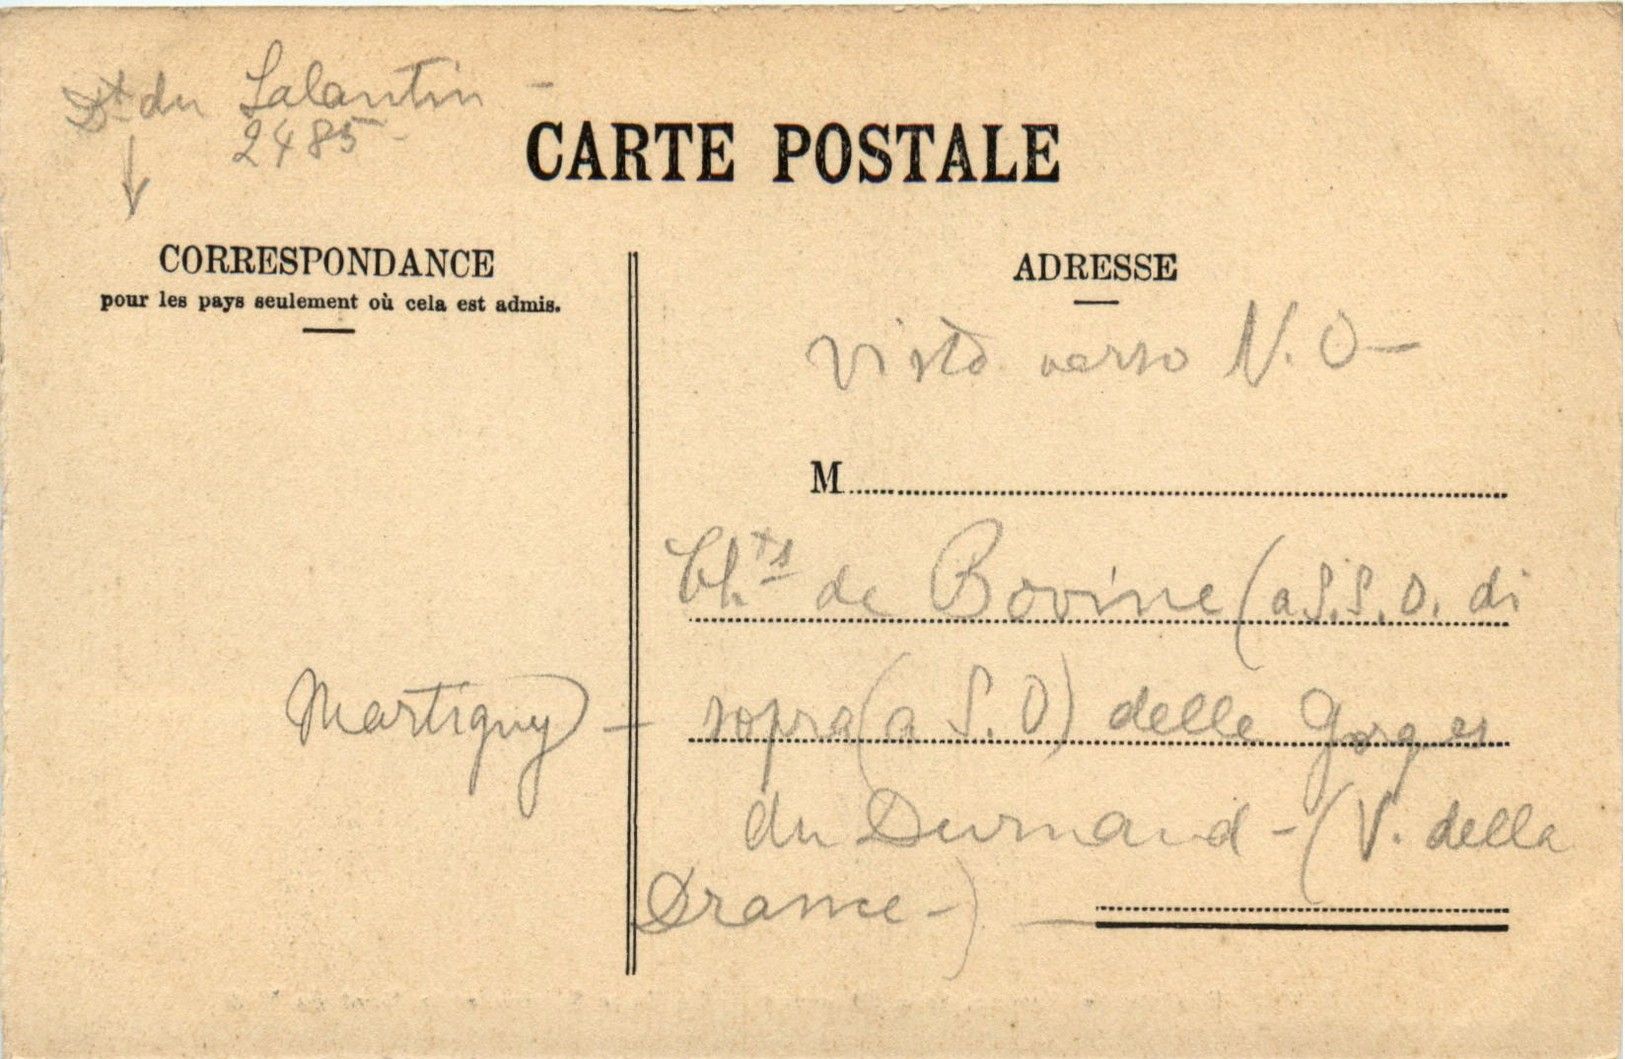 Dt du Lalantin -
2485 -
CARTE POSTALE
CORRESPONDANCE
pour les pays seulement où cela est admis.
ADRESSE
visto verso N. O -
M
Chts de Bovine (a S.S.O. di
Martigny) - sopra (a S.O) delle Gorges
du Durnand - (V. della
Drance -)